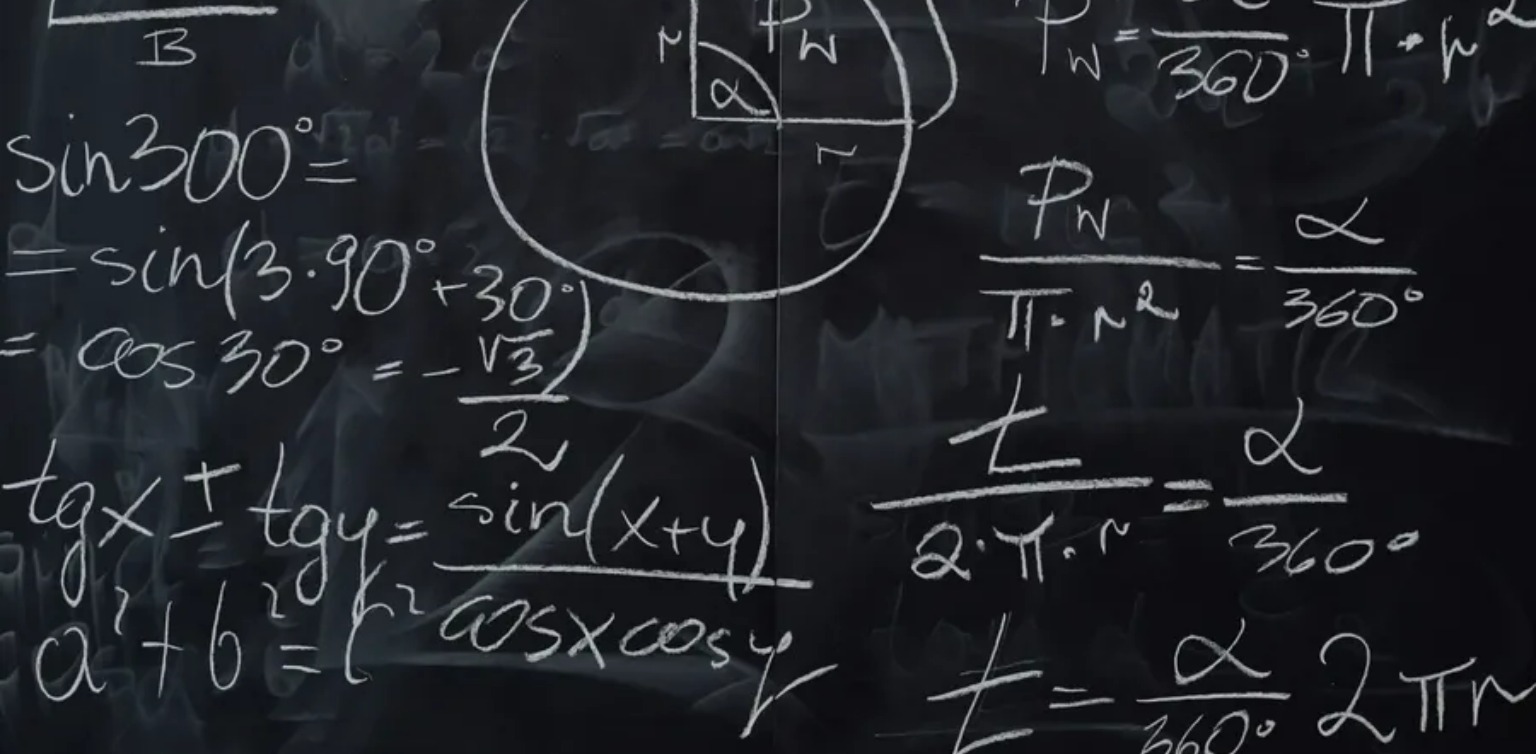 B
sin300°=
=sin(3·90°+30°)
= cos30° = -√3/2
tgx ± tgy = sin(x+y)/cosxcosy
a²+b²=c²
r
α
P_W
r
P_W = α/360° π·r²
P_W/π·r² = α/360°
Ł/2·π·r = α/360°
Ł = α/360° 2πr